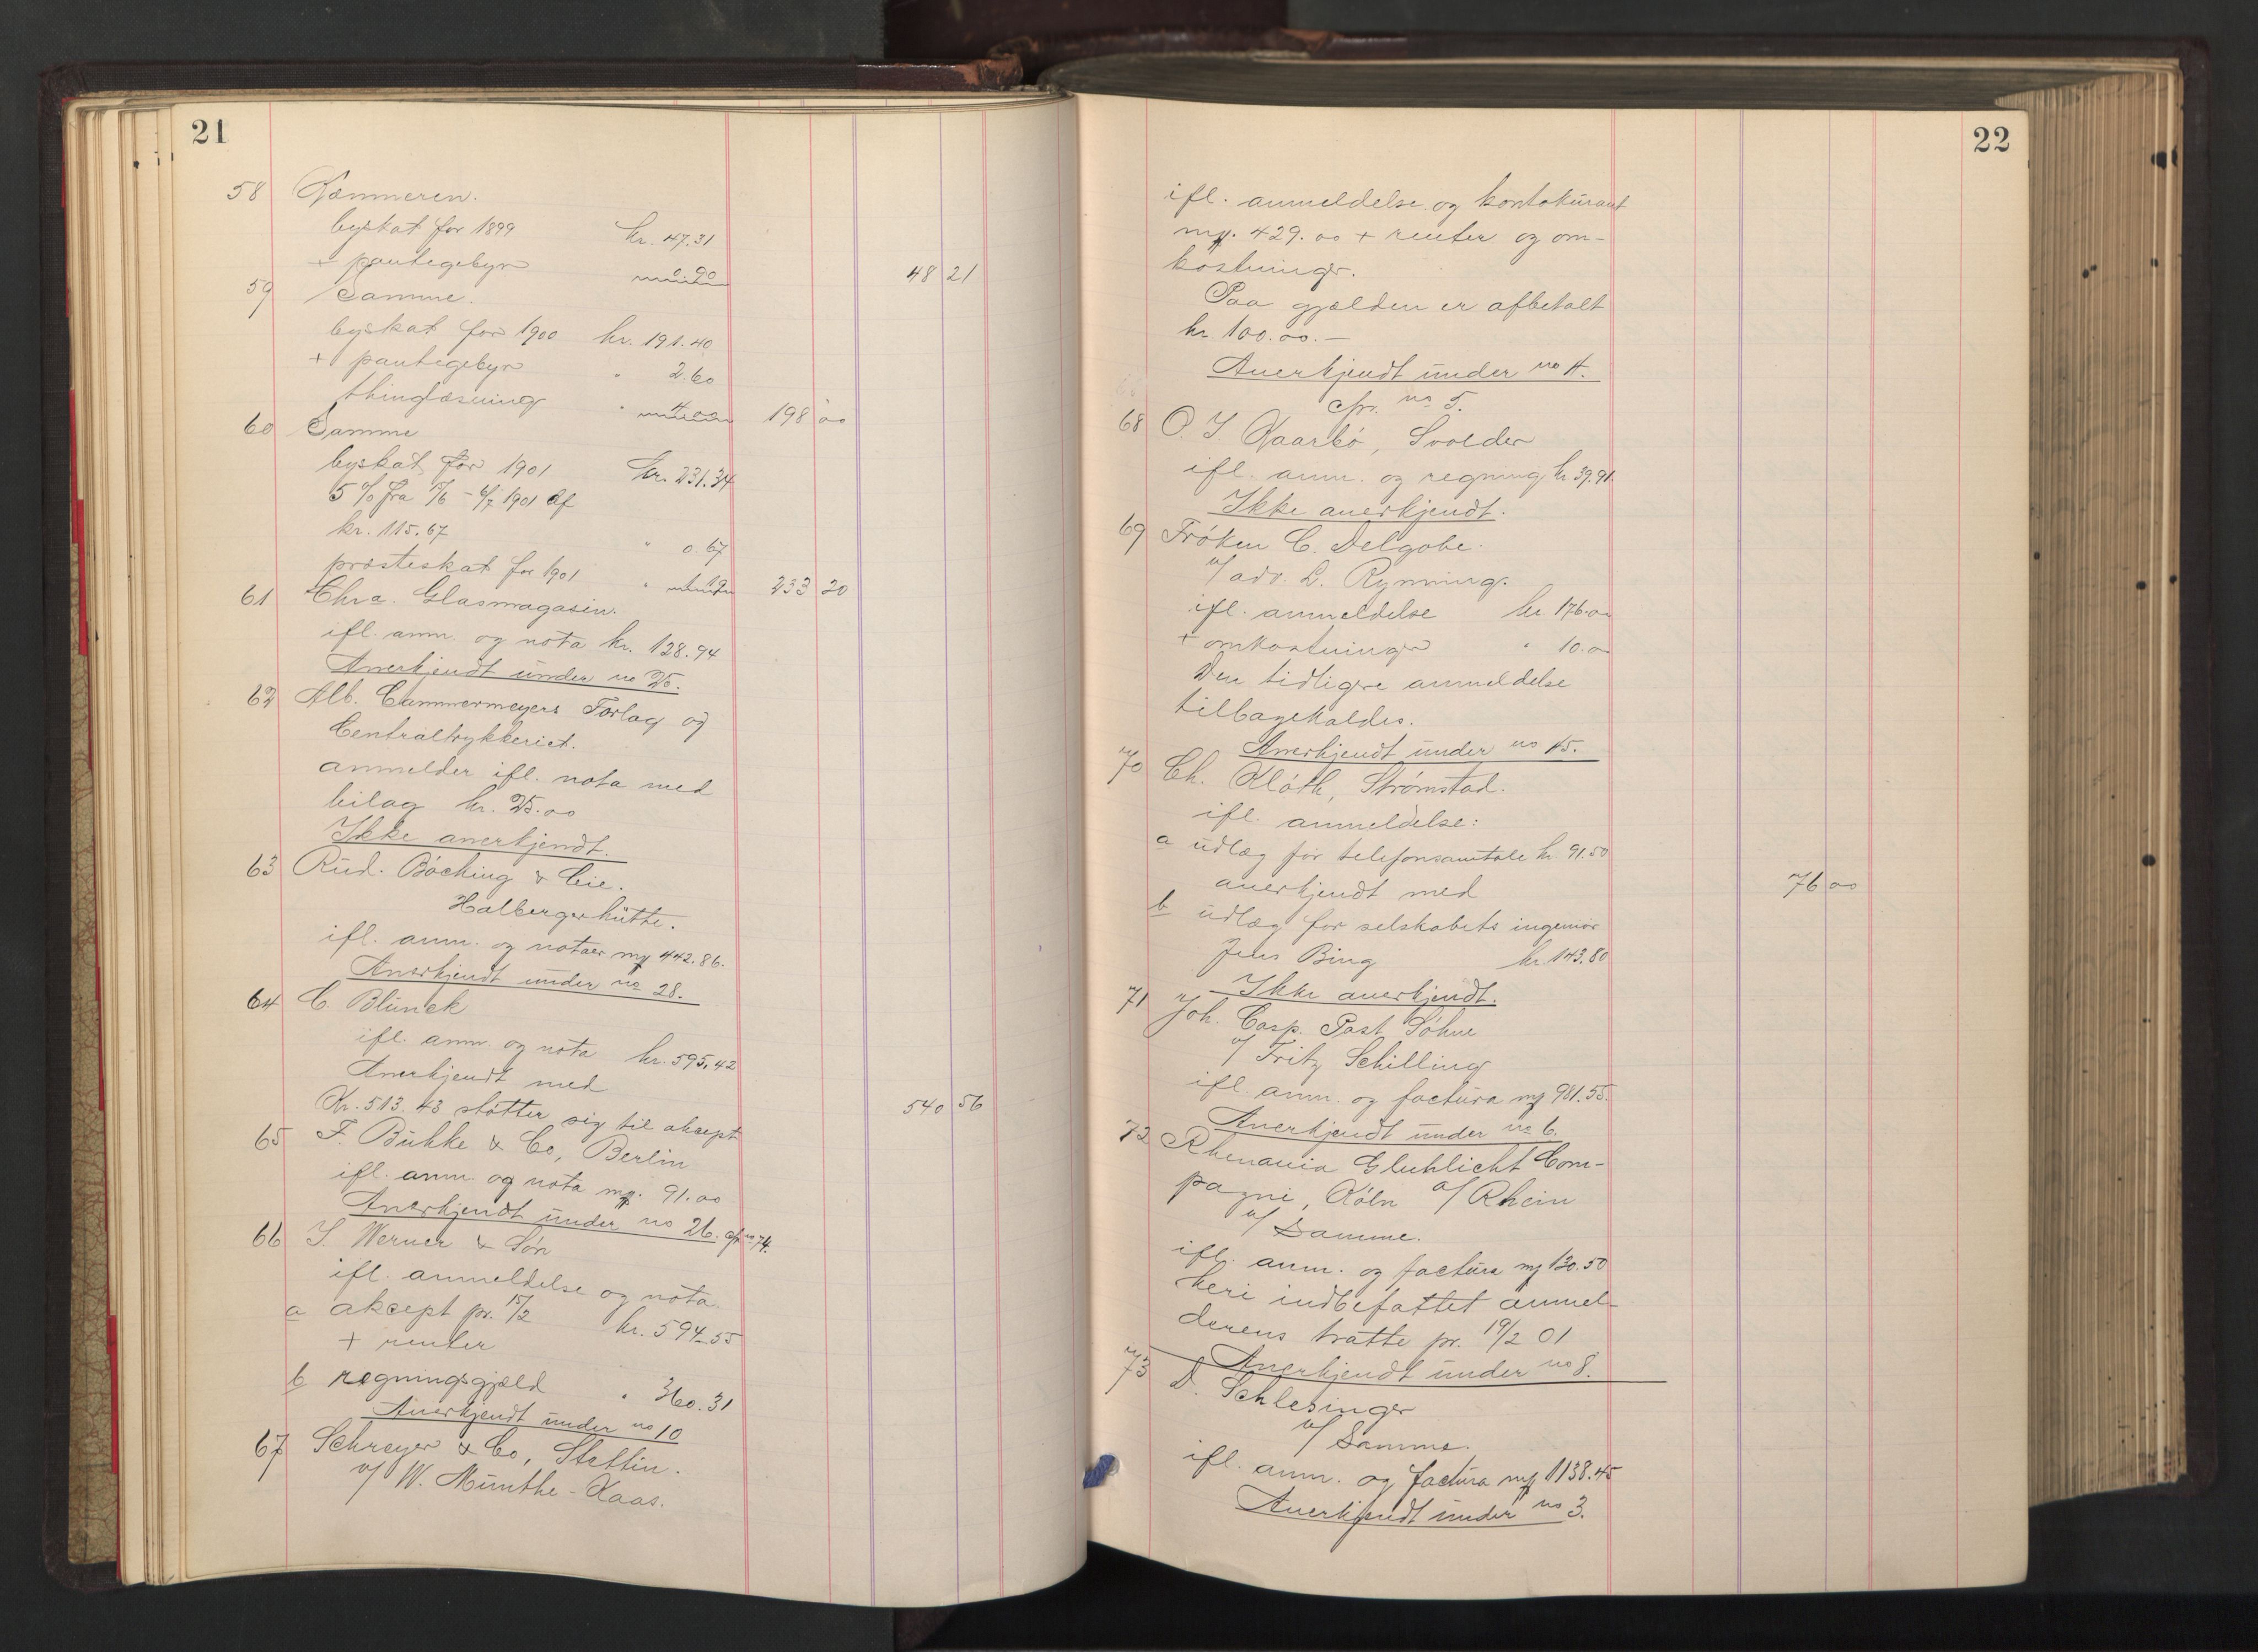 21
58 Kæmneren.
byskat for 1899 kr. 47.31
+ pantegebyr 0.90 48 21
59 Samme.
byskat for 1900 kr. 191.40
+ pantegebyr " 2.60
thinglæsning " 4.00 198 00
60 Samme
byskat for 1901 kr. 231.34
5 % fra - 6/7 1901 af
kr. 115.67 " 0.67
præsteskat for 1901 " 1.19 233 20
61 Chra. Glasmagasin.
ifl. anm. og nota kr. 128.94
Anerkjendt under no 25.
62 Alb. Cammermeyers Forlag og
Centraltrykkeriet.
anmelder ifl. nota med
bilag kr. 25.00
Ikke anerkjendt.
63 Rud. Böcking & Cie.
Halbergerhütte.
ifl. anm. og notaer mk 442.86.
Anerkjendt under no 28.
64 C. Blunck
ifl. anm. og nota kr. 595,42
Anerkjendt med 540 56
Kr. 513.43 støtter sig til akcept
65 F. Bukke & Co, Berlin
ifl. anm. og nota mk. 91.00
Anerkjendt under no 26. cfr. no 74.
66 S Werner & Søn
ifl. anmeldelse og nota.
a akcept pr. 15/2 kr. 594.55
+ renter
b regningsgjæld " 360.31
Anerkjendt under no 10
67 Schreyer & Co, Stettin.
v/ W. Munthe-Kaas.
22
ifl. anmeldelse og kontokurant
mk. 429.00 + renter og om-
kostninger.
Paa gjælden er afbetalt
kr. 100.00.—
Anerkjendt under no 4.
cfr. no 5.
68 O. I. Kaarbø, Svolder
ifl. anm. og regning kr 39.91.
Ikke anerkjendt.
69 Frøken C. Delgobe.
v/ adv. L. Rynning.
ifl. anmeldelse kr. 176.00
+ omkostninger " 10.00
Den tidligere anmeldelse
tilbagekaldes.
Anerkjendt under no 45.
70 Ch. Klóth, Strømstad.
ifl. anmeldelse:
a udlæg for telefonsamtale kr. 91.50
anerkjendt med 76 00
b udlæg for selskabets ingeniør
Jens Bing kr. 143.80
Ikke anerkjendt.
71 Joh. Casp. Post Söhne
v/ Fritz Schilling
ifl. anm. og factura mk 981.55.
Anerkjendt under no 6.
72 Rhenania Gluhlicht Com-
pagni, Köln a/ Rhein
v/ Samme.
ifl. anm. og factura mk 120.50
heri indbefattet anmel-
derens tratte pr. 19/2 01
Anerkjendt under no 8.
73 D. Schlesinger
v/ Samme.
ifl. anm. og factura mk 1138.45
Anerkjendt under no 3.